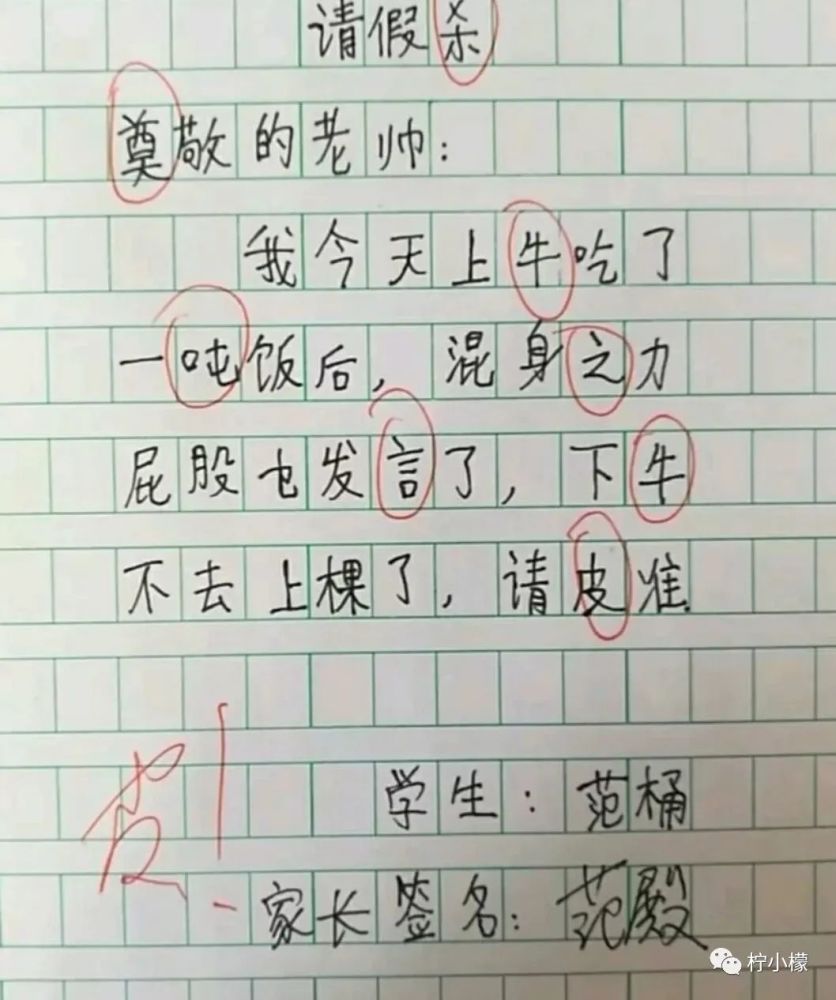 请假杀
奠敬的老帅:
我今天上牛吃了
一吨饭后,混身之力
屁股也发言了,下牛
不去上棵了,请皮准.
发!
学生:范桶
家长签名:范殿
柠小檬